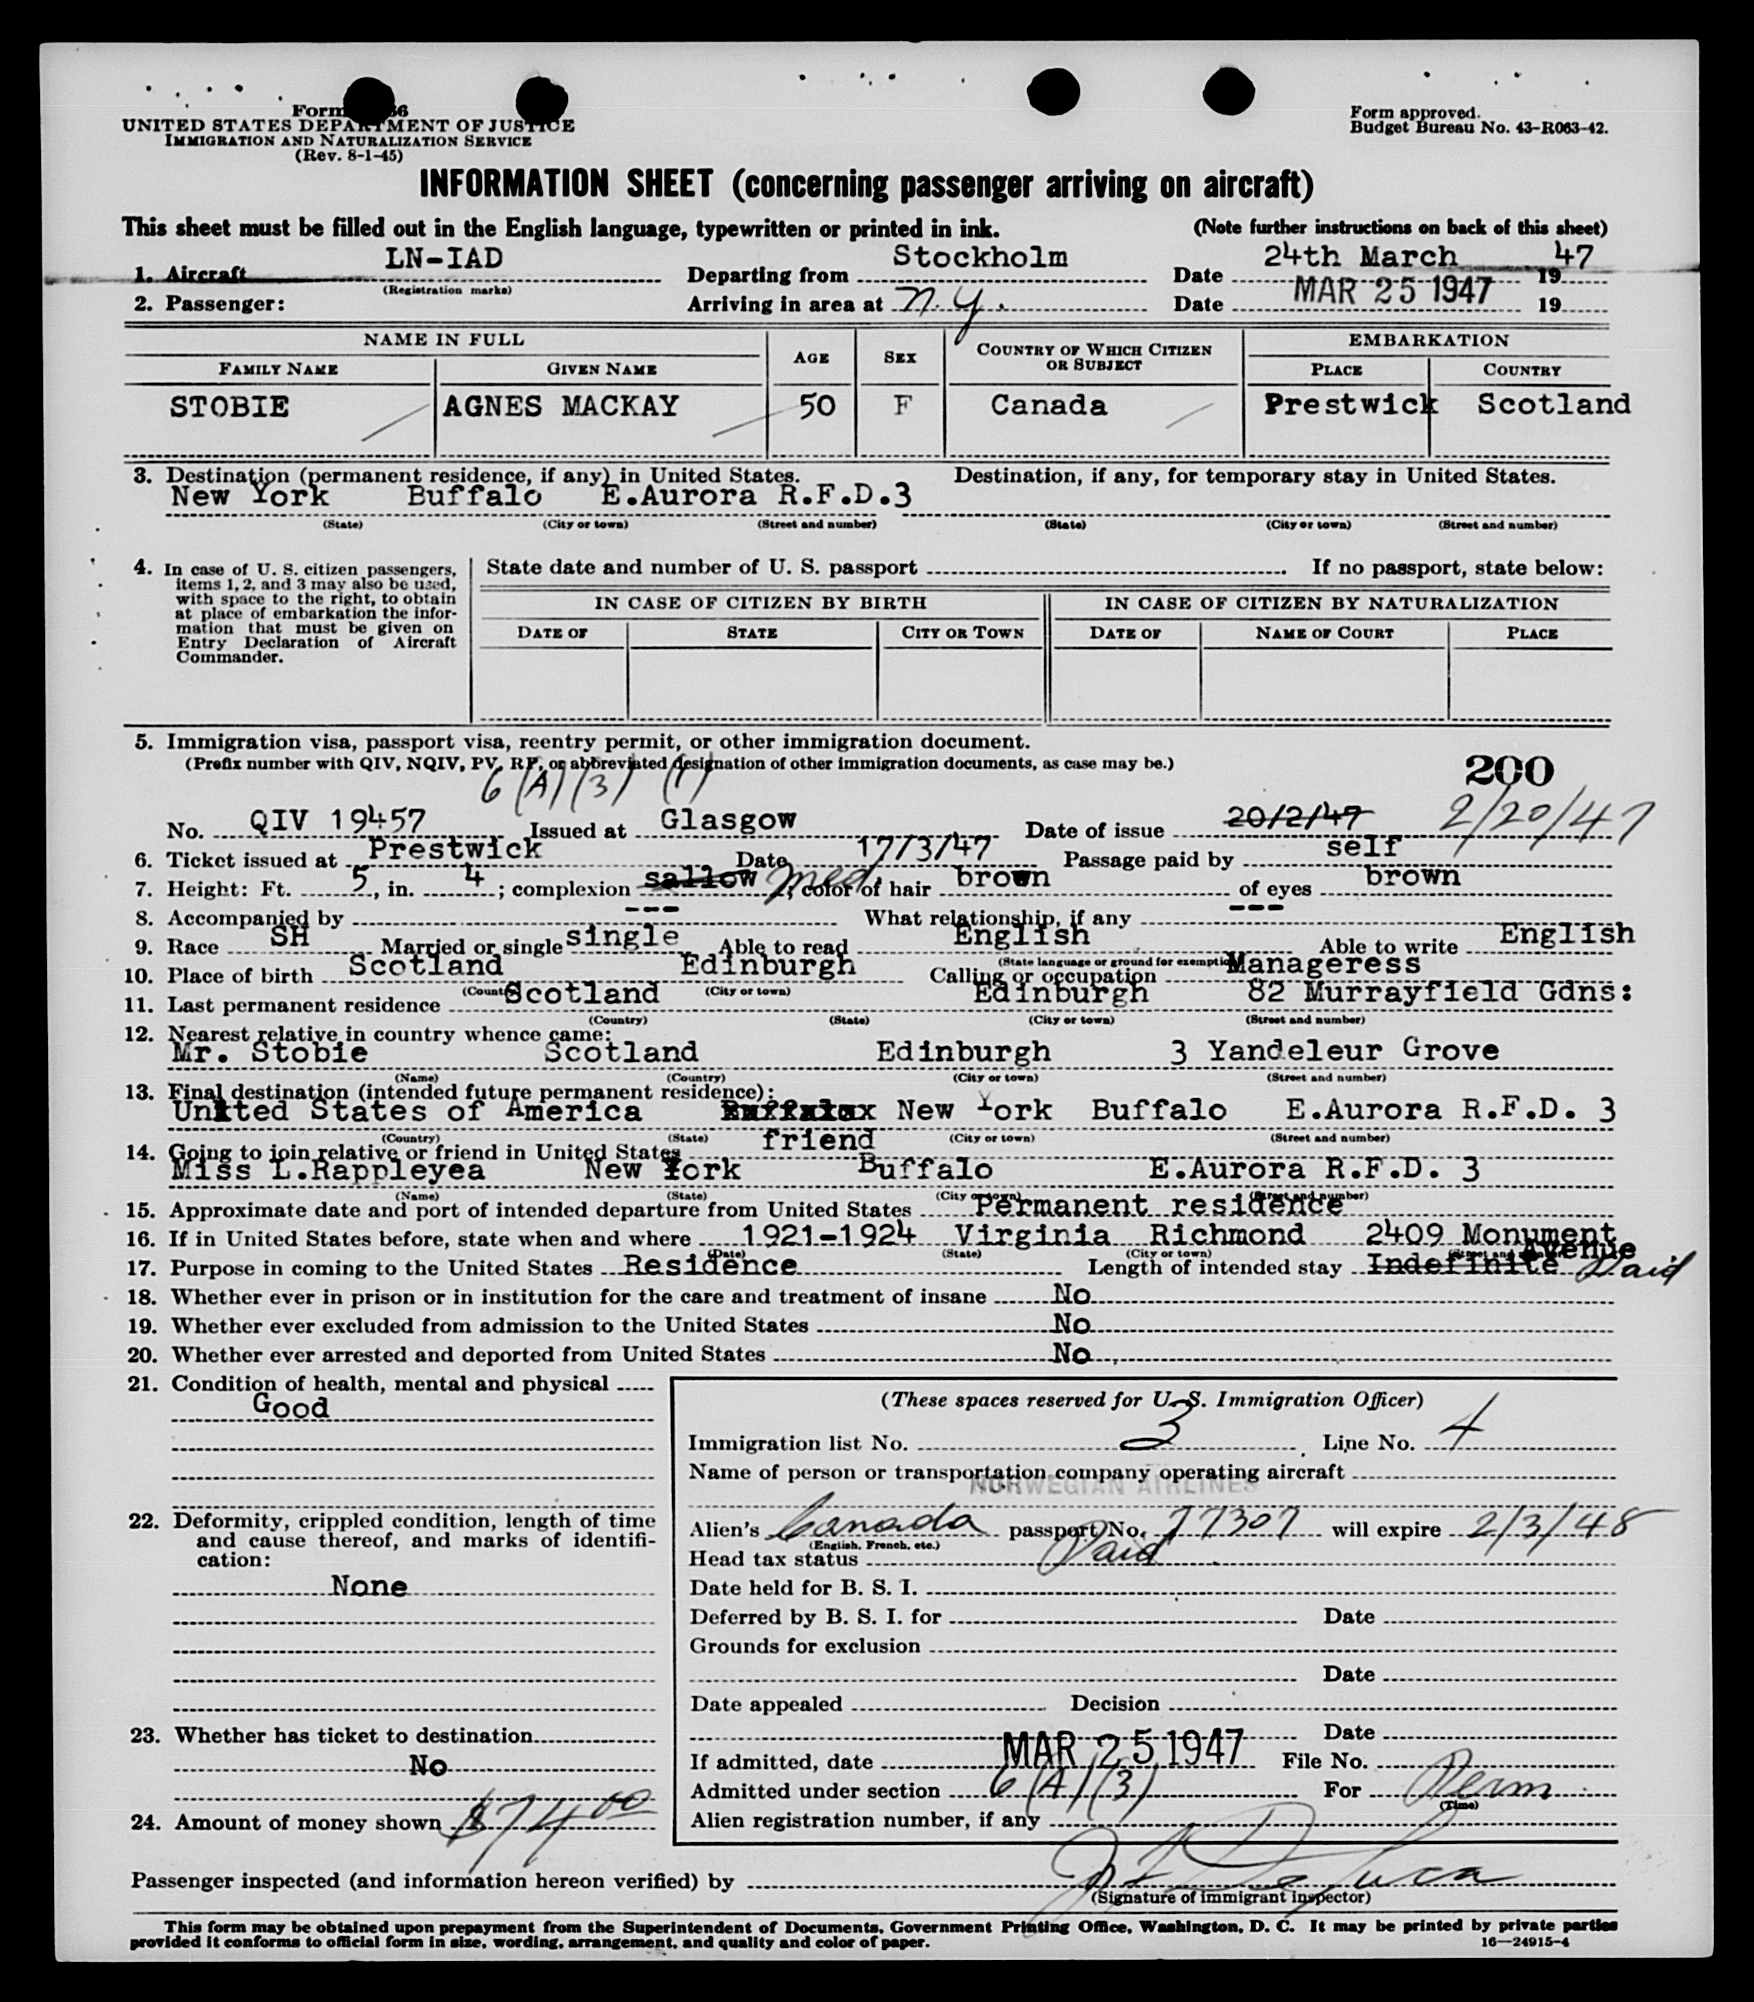 Form 66
UNITED STATES DEPARTMENT OF JUSTICE
IMMIGRATION AND NATURALIZATION SERVICE
(Rev. 8-1-45)
Form approved.
Budget Bureau No. 43-R063-42.
INFORMATION SHEET (concerning passenger arriving on aircraft)
This sheet must be filled out in the English language, typewritten or printed in ink. (Note further instructions on back of this sheet)
1. Aircraft LN-IAD Departing from Stockholm Date 24th March 1947
(Registration marks)
2. Passenger: Arriving in area at N.Y. Date MAR 25 1947 19
NAME IN FULL AGE SEX COUNTRY OF WHICH CITIZEN OR SUBJECT EMBARKATION
FAMILY NAME GIVEN NAME PLACE COUNTRY
STOBIE AGNES MACKAY 50 F Canada Prestwick Scotland
3. Destination (permanent residence, if any) in United States. Destination, if any, for temporary stay in United States.
New York Buffalo E.Aurora R.F.D.3
(State) (City or town) (Street and number) (State) (City or town) (Street and number)
4. In case of U. S. citizen passengers, items 1, 2, and 3 may also be used, with space to the right, to obtain at place of embarkation the information that must be given on Entry Declaration of Aircraft Commander.
State date and number of U. S. passport If no passport, state below:
IN CASE OF CITIZEN BY BIRTH IN CASE OF CITIZEN BY NATURALIZATION
DATE OF STATE CITY OR TOWN DATE OF NAME OF COURT PLACE
5. Immigration visa, passport visa, reentry permit, or other immigration document.
(Prefix number with QIV, NQIV, PV, RP, or abbreviated designation of other immigration documents, as case may be.)
200
6(A)(3) (1)
No. QIV 19457 Issued at Glasgow Date of issue 20/2/47 2/20/47
6. Ticket issued at Prestwick Date 17/3/47 Passage paid by self
7. Height: Ft. 5, in. 4; complexion sallow med; color of hair brown of eyes brown
8. Accompanied by --- What relationship, if any ---
9. Race SH Married or single single Able to read English Able to write English
(State language or ground for exemption)
10. Place of birth Scotland Edinburgh Calling or occupation Manageress
(Country) (City or town)
11. Last permanent residence Scotland Edinburgh 82 Murrayfield Gdns:
(Country) (State) (City or town) (Street and number)
12. Nearest relative in country whence came:
Mr. Stobie Scotland Edinburgh 3 Yandeleur Grove
(Name) (Country) (City or town) (Street and number)
13. Final destination (intended future permanent residence):
United States of America New York Buffalo E.Aurora R.F.D. 3
(Country) (State) (City or town) (Street and number)
14. Going to join relative or friend in United States friend
Miss L.Rappleyea New York Buffalo E.Aurora R.F.D. 3
(Name) (State) (City or town) (Street and number)
15. Approximate date and port of intended departure from United States Permanent residence
16. If in United States before, state when and where 1921-1924 Virginia Richmond 2409 Monument Avenue
(Date) (State) (City or town)
17. Purpose in coming to the United States Residence Length of intended stay Indefinite Paid
18. Whether ever in prison or in institution for the care and treatment of insane No
19. Whether ever excluded from admission to the United States No
20. Whether ever arrested and deported from United States No
21. Condition of health, mental and physical
Good
22. Deformity, crippled condition, length of time and cause thereof, and marks of identification:
None
23. Whether has ticket to destination
No
24. Amount of money shown $74 00
(These spaces reserved for U. S. Immigration Officer)
Immigration list No. 3 Line No. 4
Name of person or transportation company operating aircraft
NORWEGIAN AIRLINES
Alien's Canada passport No. 77307 will expire 2/3/48
(English, French, etc.)
Head tax status Paid
Date held for B. S. I.
Deferred by B. S. I. for Date
Grounds for exclusion
Date
Date appealed Decision
Date
If admitted, date MAR 25 1947 File No.
Admitted under section 6(A)(3) For Perm
(Time)
Alien registration number, if any
Passenger inspected (and information hereon verified) by
(Signature of immigrant inspector)
This form may be obtained upon prepayment from the Superintendent of Documents, Government Printing Office, Washington, D. C. It may be printed by private parties
provided it conforms to official form in size, wording, arrangement, and quality and color of paper. 16—24915-4